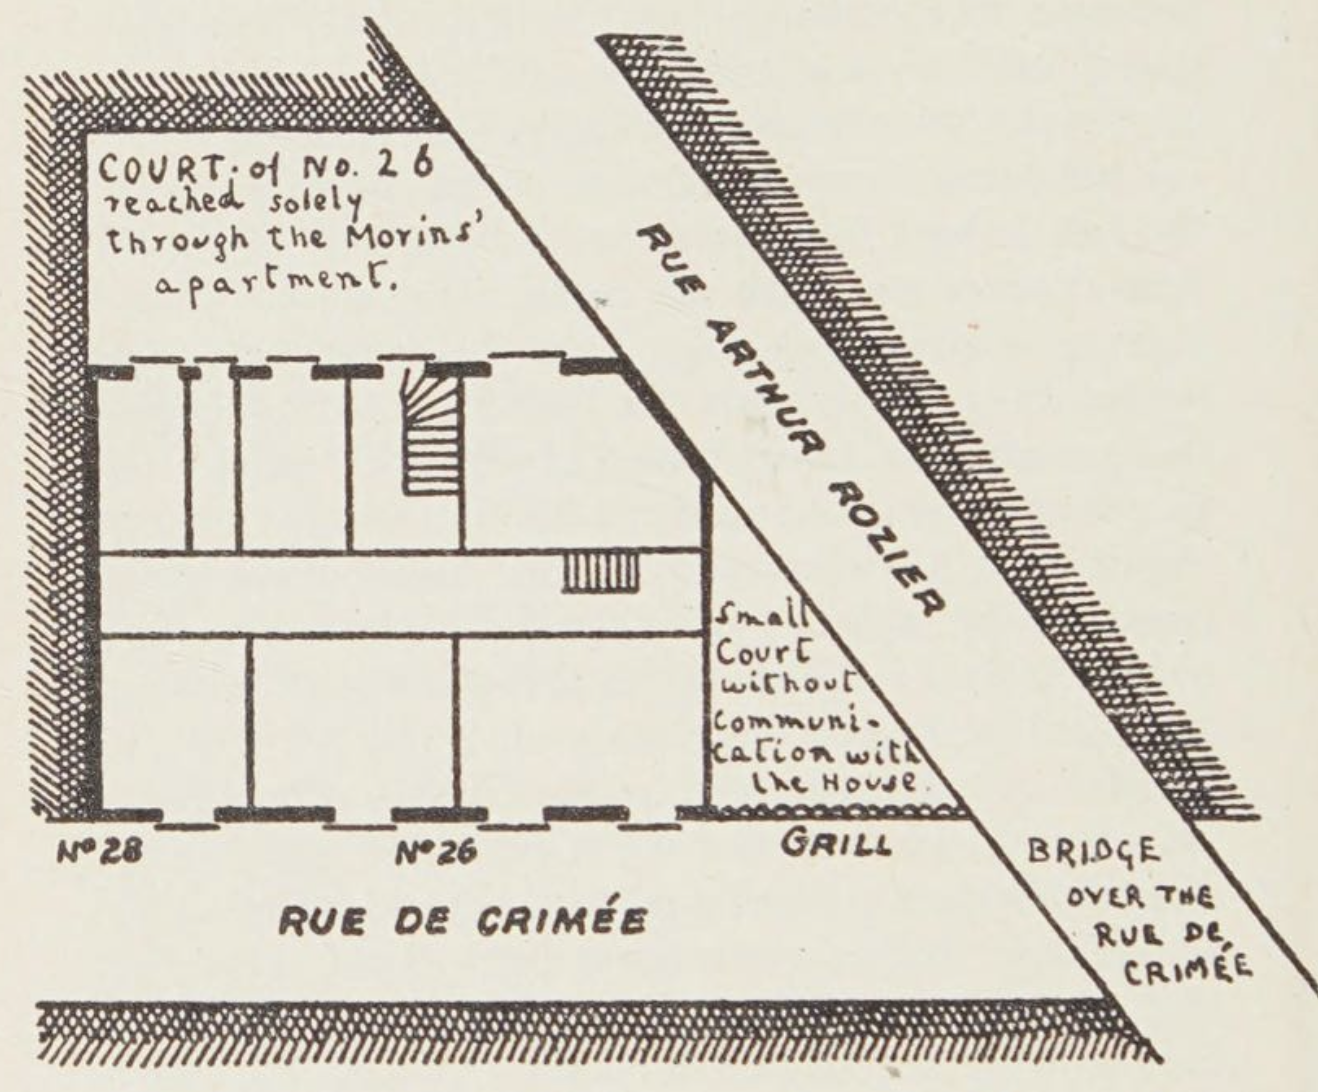 COURT. of No. 26
reached solely
through the Morins'
apartment.
RUE ARTHUR ROZIER
Small
Court
without
Communi-
cation with
the House.
Nº 28
Nº 26
GRILL
BRIDGE
OVER THE
RUE DE
CRIMÉE
RUE DE CRIMÉE